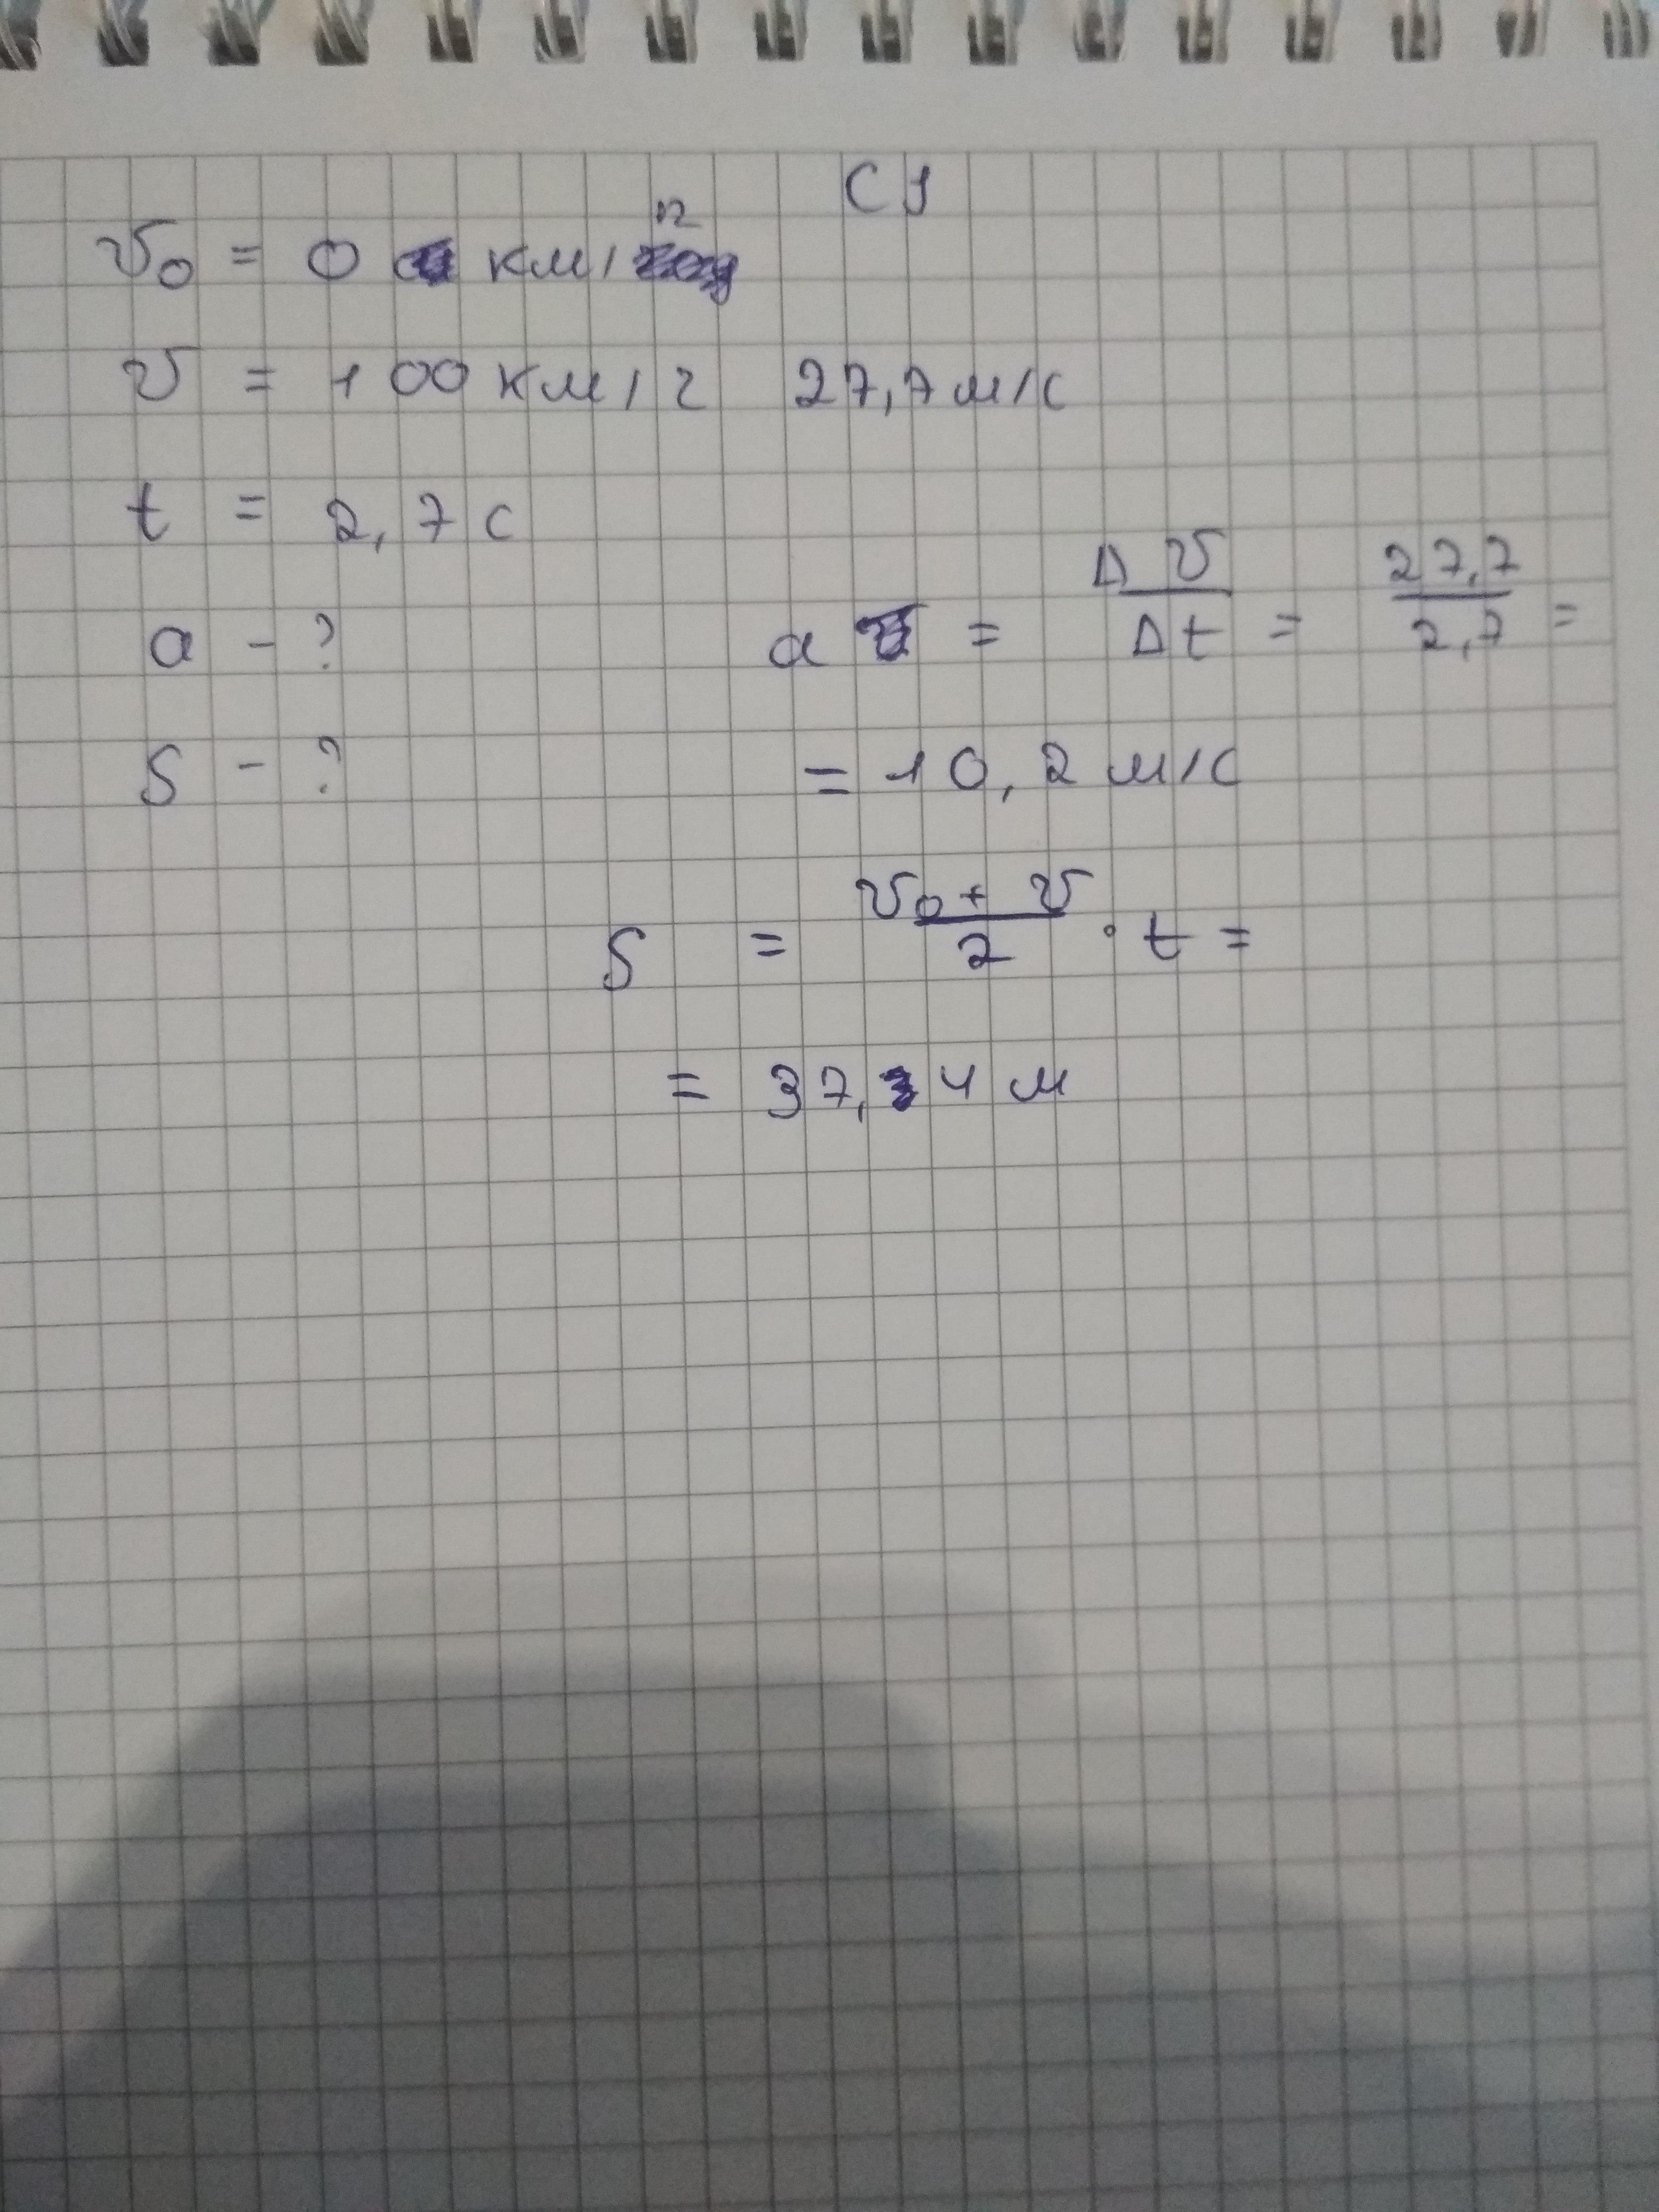 СИ
v₀ = 0 км/г
v = 100 км/г 27,7 м/с
t = 2,7 с
a - ? a = Δv/Δt = 27,7/2,7 =
S - ? = 10,2 м/с
S = (v₀ + v)/2 · t =
= 37,4 м